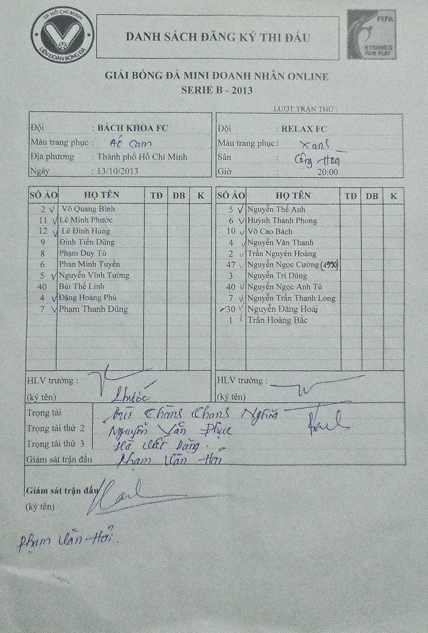 TP HỒ CHÍ MINH
LIÊN ĐOÀN BÓNG ĐÁ
DANH SÁCH ĐĂNG KÝ THI ĐẤU
FIFA
GIẢI BÓNG ĐÁ MINI DOANH NHÂN ONLINE
SERIE B - 2013
LƯỢT TRẬN THỨ :
Đội : BÁCH KHOA FC
Màu trang phục : Áo Cam
Địa phương : Thành phố Hồ Chí Minh
Ngày : 13/10/2013
Đội : RELAX FC
Màu trang phục : Xanh
Sân : Cộng Hòa
Giờ : 20:00
SỐ ÁO HỌ TÊN TĐ DB K
2 Võ Quang Bình
11 Lê Minh Phước
12 Lê Đình Hùng
9 Đinh Tiến Dũng
8 Phạm Duy Tú
6 Phan Minh Tuyền
5 Nguyễn Vĩnh Tường
40 Bùi Thế Linh
4 Đặng Hoàng Phú
7 Phạm Thanh Dũng
SỐ ÁO HỌ TÊN TĐ DB K
5 Nguyễn Thế Anh
6 Huỳnh Thanh Phong
10 Võ Cao Bách
4 Nguyễn Văn Thanh
2 Trần Nguyên Hoàng
47 Nguyễn Ngọc Cường (1990)
3 Nguyễn Tri Dũng
40 Nguyễn Ngọc Anh Tú
7 Nguyễn Trần Thanh Long
30 Nguyễn Đăng Hoài
1 Trần Hoàng Bắc
HLV trưởng :
(ký tên) Phước
HLV trưởng :
(ký tên)
Trọng tài Bùi Nghĩa
Trọng tài thứ 2 Nguyễn Văn Phục
Trọng tài thứ 3
Giám sát trận đấu Phạm Văn Hải
Giám sát trận đấu
(ký tên)
Phạm Văn Hải